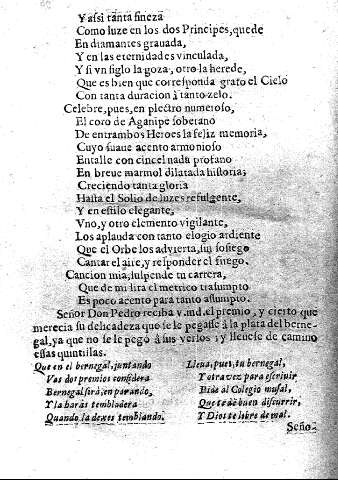 Y assi tanta fineza
Como luze en los dos Principes, quede
En diamantes grauada,
Y en las eternidades vinculada,
Y si vn siglo la goza, otro la herede,
Que es bien que corresponda grato el Cielo
Con tanta duracion à tanto zelo.
Celebre, pues, en plectro numeroso,
El coro de Aganipe soberano
De entrambos Heroes la feliz memoria,
Cuyo suaue acento armonioso
Entalle con cincel nada profano
En breue marmol dilatada historia;
Creciendo tanta gloria
Hasta el Solio de luzes refulgente,
Y en estilo elegante,
Vno, y otro clemento vigilante,
Los aplauda con tanto elogio ardiente
Que el Orbe los advierta, sin sosiego
Cantar el aire, y responder el fuego.
Cancion mia, suspende tu carrera,
Que de mi lira el metrico trasumpto
Es poco acento para tanto assumpto.
Señor Don Pedro reciba v.md. el premio, y cierto que
merecia su delicadeza que se le pegasse à la plata del berne-
gal, ya que no se le pegò à sus versos; y lleuese de camino
essas quintillas.
Que en el bernegal, juntando
Vas dos premios considera
Bernegal serà, en parando,
Y la haràs tembladera
Quando la dexes temblando.
Lleua, pues, tu bernegal,
Y otra vez para escriuir
Pide al Colegio musal,
Que te dè buen discurrir,
Y Dios te libre de mal.
Seño-